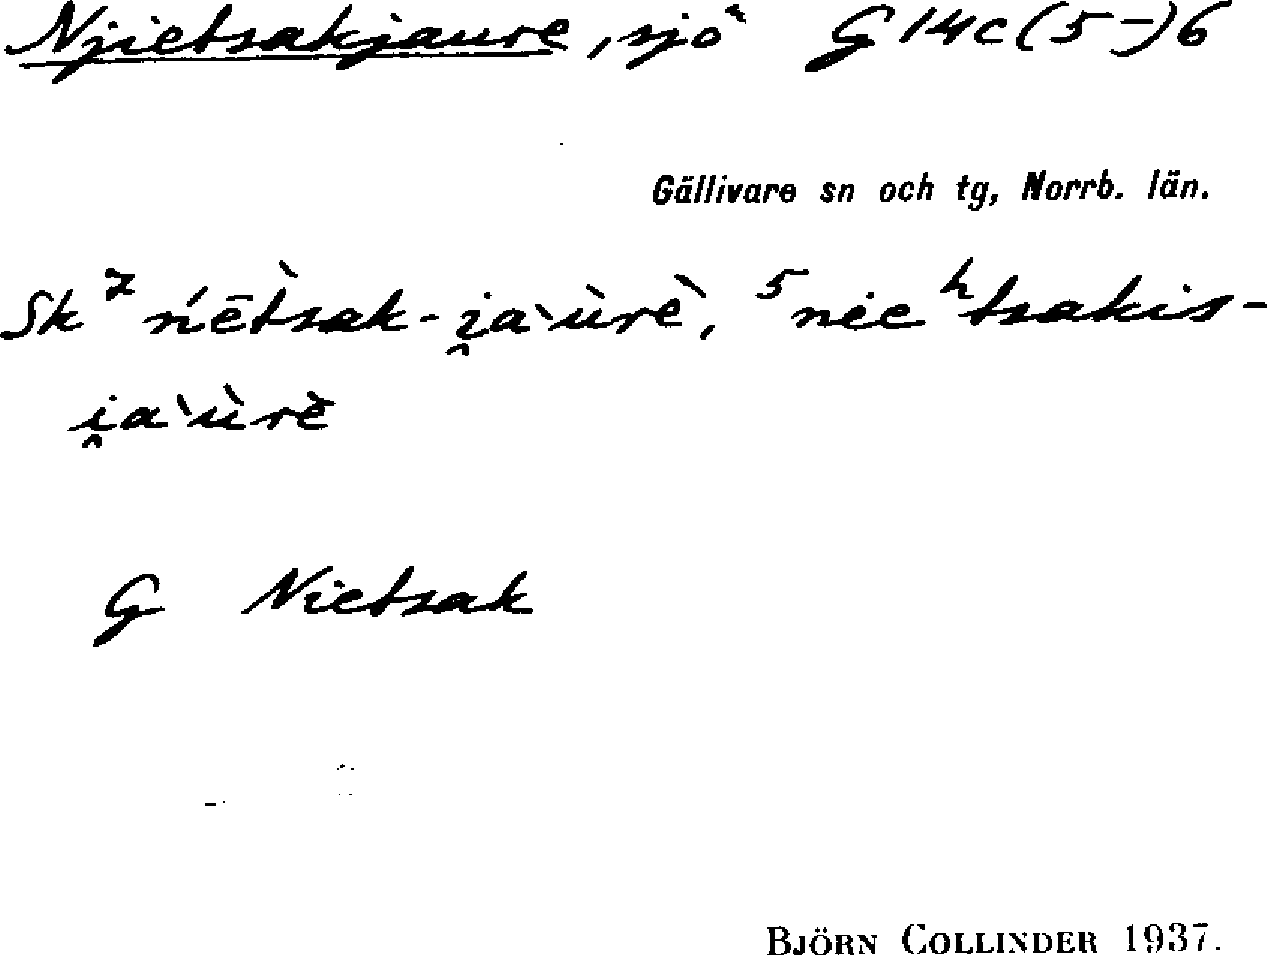 Njietsakjaure, sjö G 14c (5-)6
Gällivare sn och tg, Norrb. län.
Sk ⁷ ńēt̀sak-i̯a`ùrè, ⁵ nieʰtsakis-
i̯a`ùrè
G Nietsak
BJÖRN COLLINDER 1937.